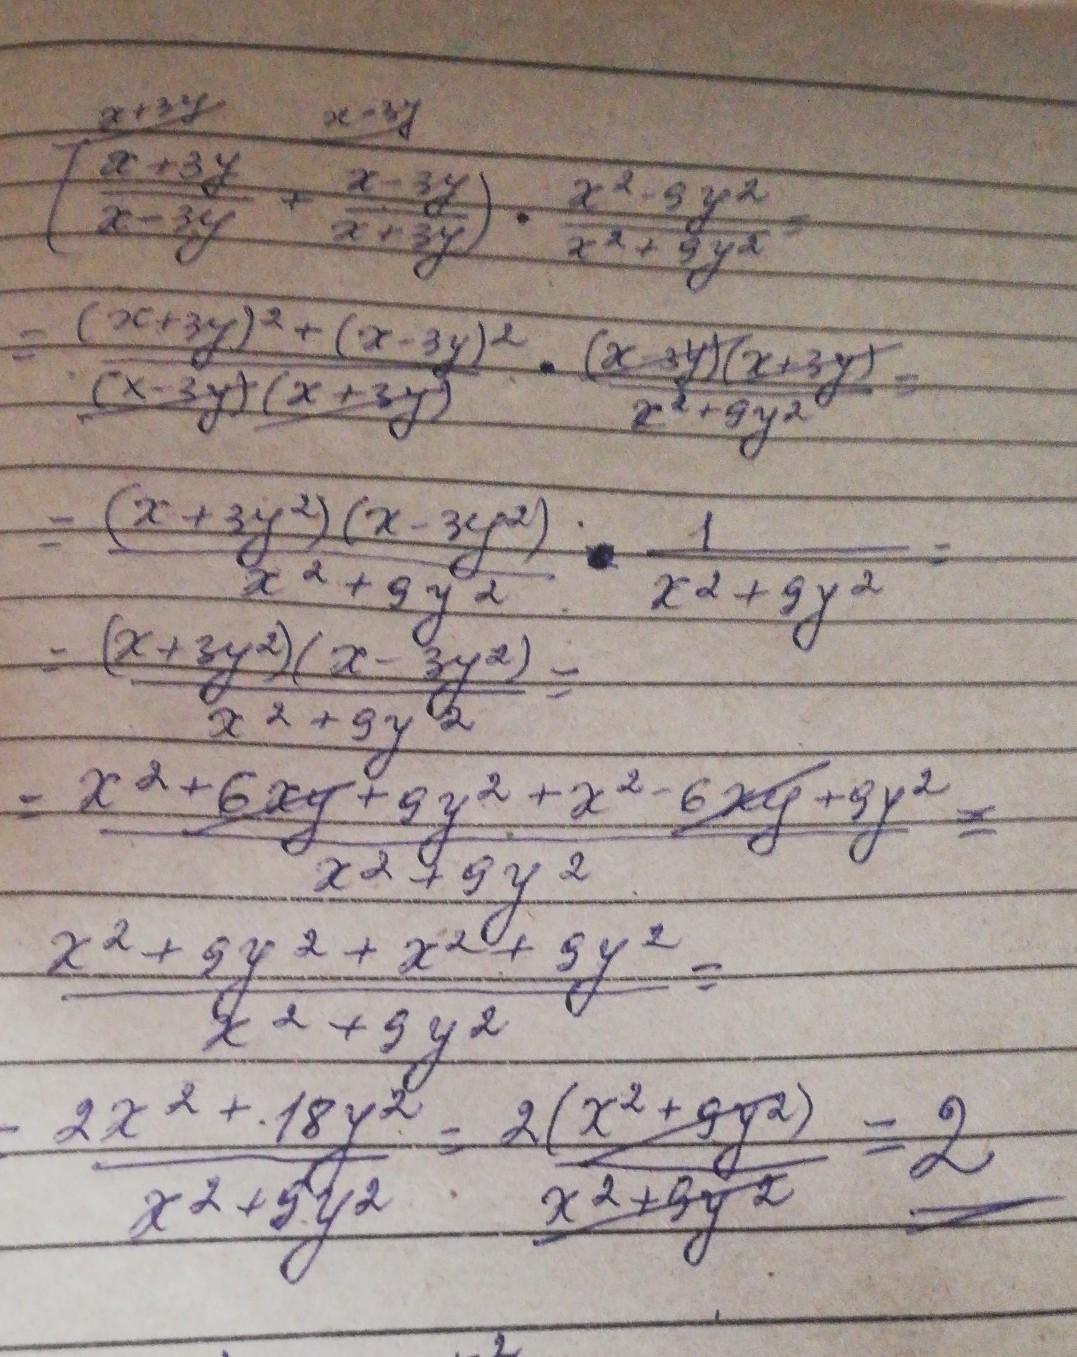 x+3y x-3y
[x+3y/x-3y + x-3y/x+3y) · x²-9y²/x²+9y² =
= (x+3y)²+(x-3y)²/(x-3y)(x+3y) · (x-3y)(x+3y)/x²+9y² =
= (x+3y²)(x-3y²)/x²+9y² · 1/x²+9y² =
= (x+3y²)(x-3y²)/x²+9y² =
= x²+6xy+9y²+x²-6xy+9y²/x²+9y² =
x²+9y²+x²+9y²/x²+9y² =
- 2x²+18y²/x²+9y² = 2(x²+9y²)/x²+9y² = 2